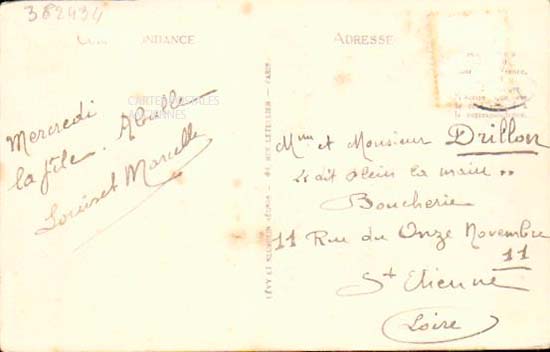 382434
CORRESPONDANCE
ADRESSE
CARTES POSTALES
ANCIENNES
Mercredi
la fête. Abulle
Louis et Marcelle
LÉVY ET NEURDEIN RÉUNIS - 44 RUE LETELLIER - PARIS
Mme et Monsieur Drillon
"dit Plein la main"
Boucherie
11 Rue du Onze Novembre
11
St Etienne
Loire